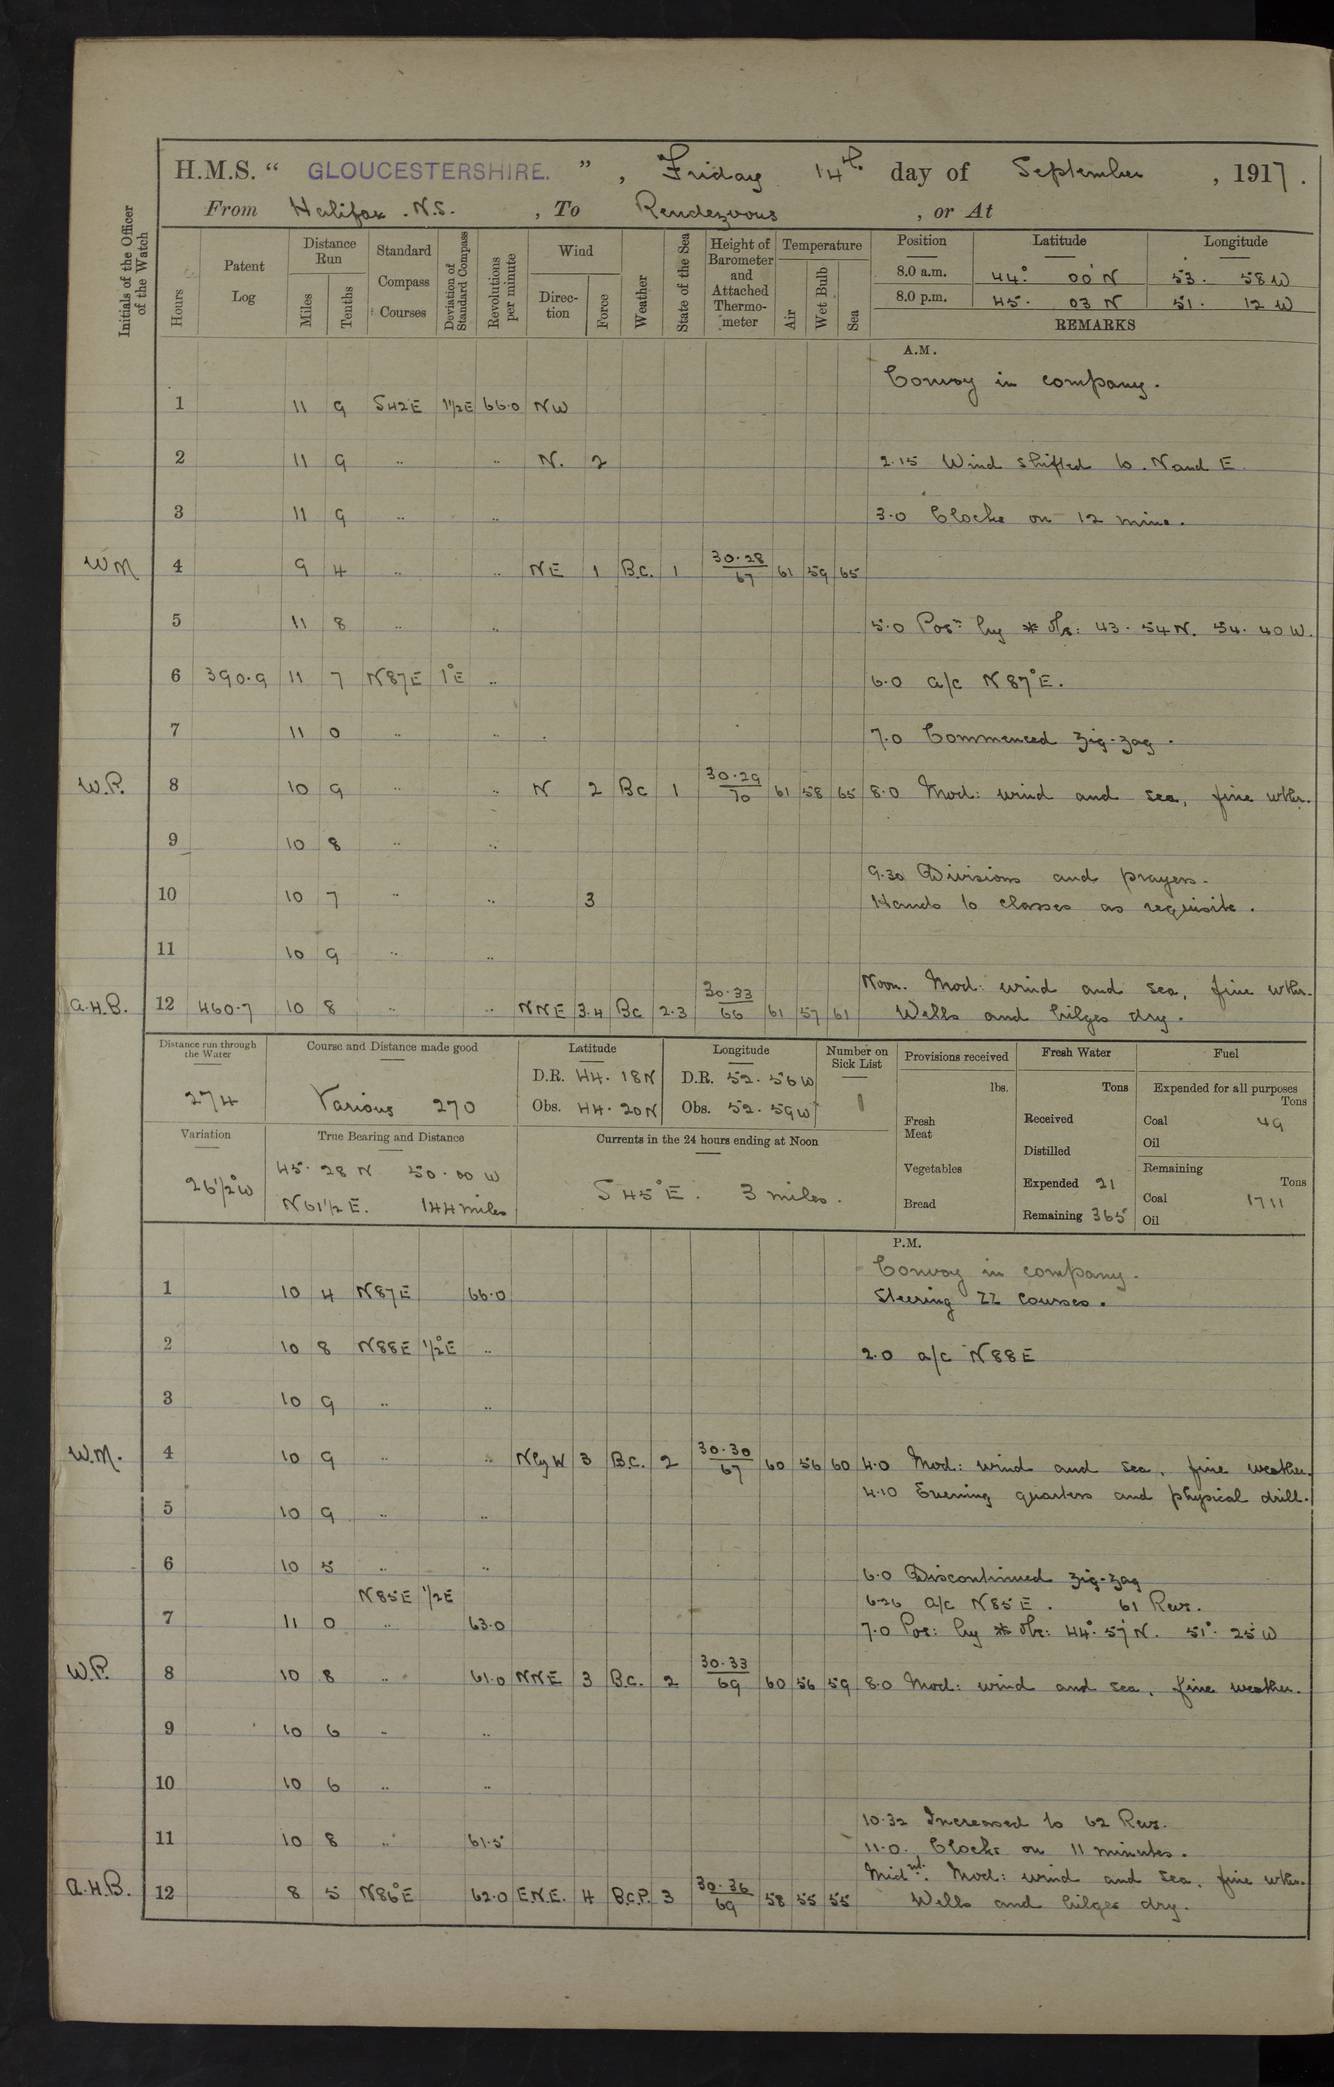 H.M.S. “ GLOUCESTERSHIRE. ” , Friday 14th day of September , 1917.
From Halifax . N.S. , To Rendezvous , or At
Initials of the Officer of the Watch
Hours Patent Log Distance Run Miles Tenths Standard Compass Courses Deviation of Standard Compass Revolutions per minute Wind Direction Force Weather State of the Sea Height of Barometer and Attached Thermometer Temperature Air Wet Bulb Sea Position Latitude Longitude
8.0 a.m. 44° 00' N 53. 58 W
8.0 p.m. 45. 03 N 51. 12 W
REMARKS
A.M.
Convoy in company.
1 11 9 S42E 1½E 66.0 NW
2 11 9 .. .. N. 2 2.15 Wind shifted to. N and E
3 11 9 .. .. 3.0 Clocks on 12 mins.
WM 4 9 4 .. .. NE 1 B.C. 1 30.28 67 61 59 65
5 11 8 .. .. 5.0 Posn by * obs: 43. 54 N. 54. 40 W.
6 390.9 11 7 N87E 1°E .. 6.0 a/c N 87°E.
7 11 0 .. .. 7.0 Commenced zig-zag.
W.P. 8 10 9 .. .. N 2 Bc 1 30.29 70 61 58 65 8.0 Mod: wind and sea, fine wthr.
9 10 8 .. ..
9.30 Divisions and prayers.
10 10 7 .. .. 3 Hands to classes as requisite.
11 10 9 .. ..
Noon. Mod: wind and sea, fine wthr.
A.H.B. 12 460.7 10 8 .. .. NNE 3.4 Bc 2.3 30.33 66 61 57 61 Wells and bilges dry.
Distance run through the Water Course and Distance made good Latitude Longitude Number on Sick List Provisions received Fresh Water Fuel
274 Various 270 D.R. 44. 18 N D.R. 52. 56 W 1 lbs. Tons Expended for all purposes Tons
Obs. 44. 20 N Obs. 52. 59 W Fresh Meat Received Coal 49
Oil
Variation True Bearing and Distance Currents in the 24 hours ending at Noon Distilled
26½W 45. 28 N 50. 00 W S 45°E. 3 miles. Vegetables Expended 21 Remaining Tons
N61½E. 144 miles Bread Remaining 365 Coal 1711
Oil
P.M.
Convoy in company.
1 10 4 N87E 66.0 Steering ZZ courses.
2 10 8 N88E ½°E .. 2.0 a/c N88E
3 10 9 .. ..
W.M. 4 10 9 .. .. NbyW 3 B.C. 2 30.30 67 60 56 60 4.0 Mod: wind and sea, fine weather.
4.10 Evening quarters and physical drill.
5 10 9 .. ..
6 10 5 .. .. 6.0 Discontinued zig-zag
N85E ½E 6.26 a/c N85E. 61 Revs.
7 11 0 .. 63.0 7.0 Pos: by * obs: 44°. 57' N. 51°. 25' W
W.P. 8 10 8 .. 61.0 NNE 3 B.C. 2 30.33 69 60 56 59 8.0 Mod: wind and sea, fine weather.
9 10 6 .. ..
10 10 6 .. ..
10.32 Increased to 62 Revs.
11 10 8 .. 61.5 11.0. Clocks on 11 minutes.
Midnt. Mod: wind and sea, fine wthr.
A.H.B. 12 8 5 N86°E 62.0 E.N.E. 4 B.C.P. 3 30.36 69 58 55 55 Wells and bilges dry.